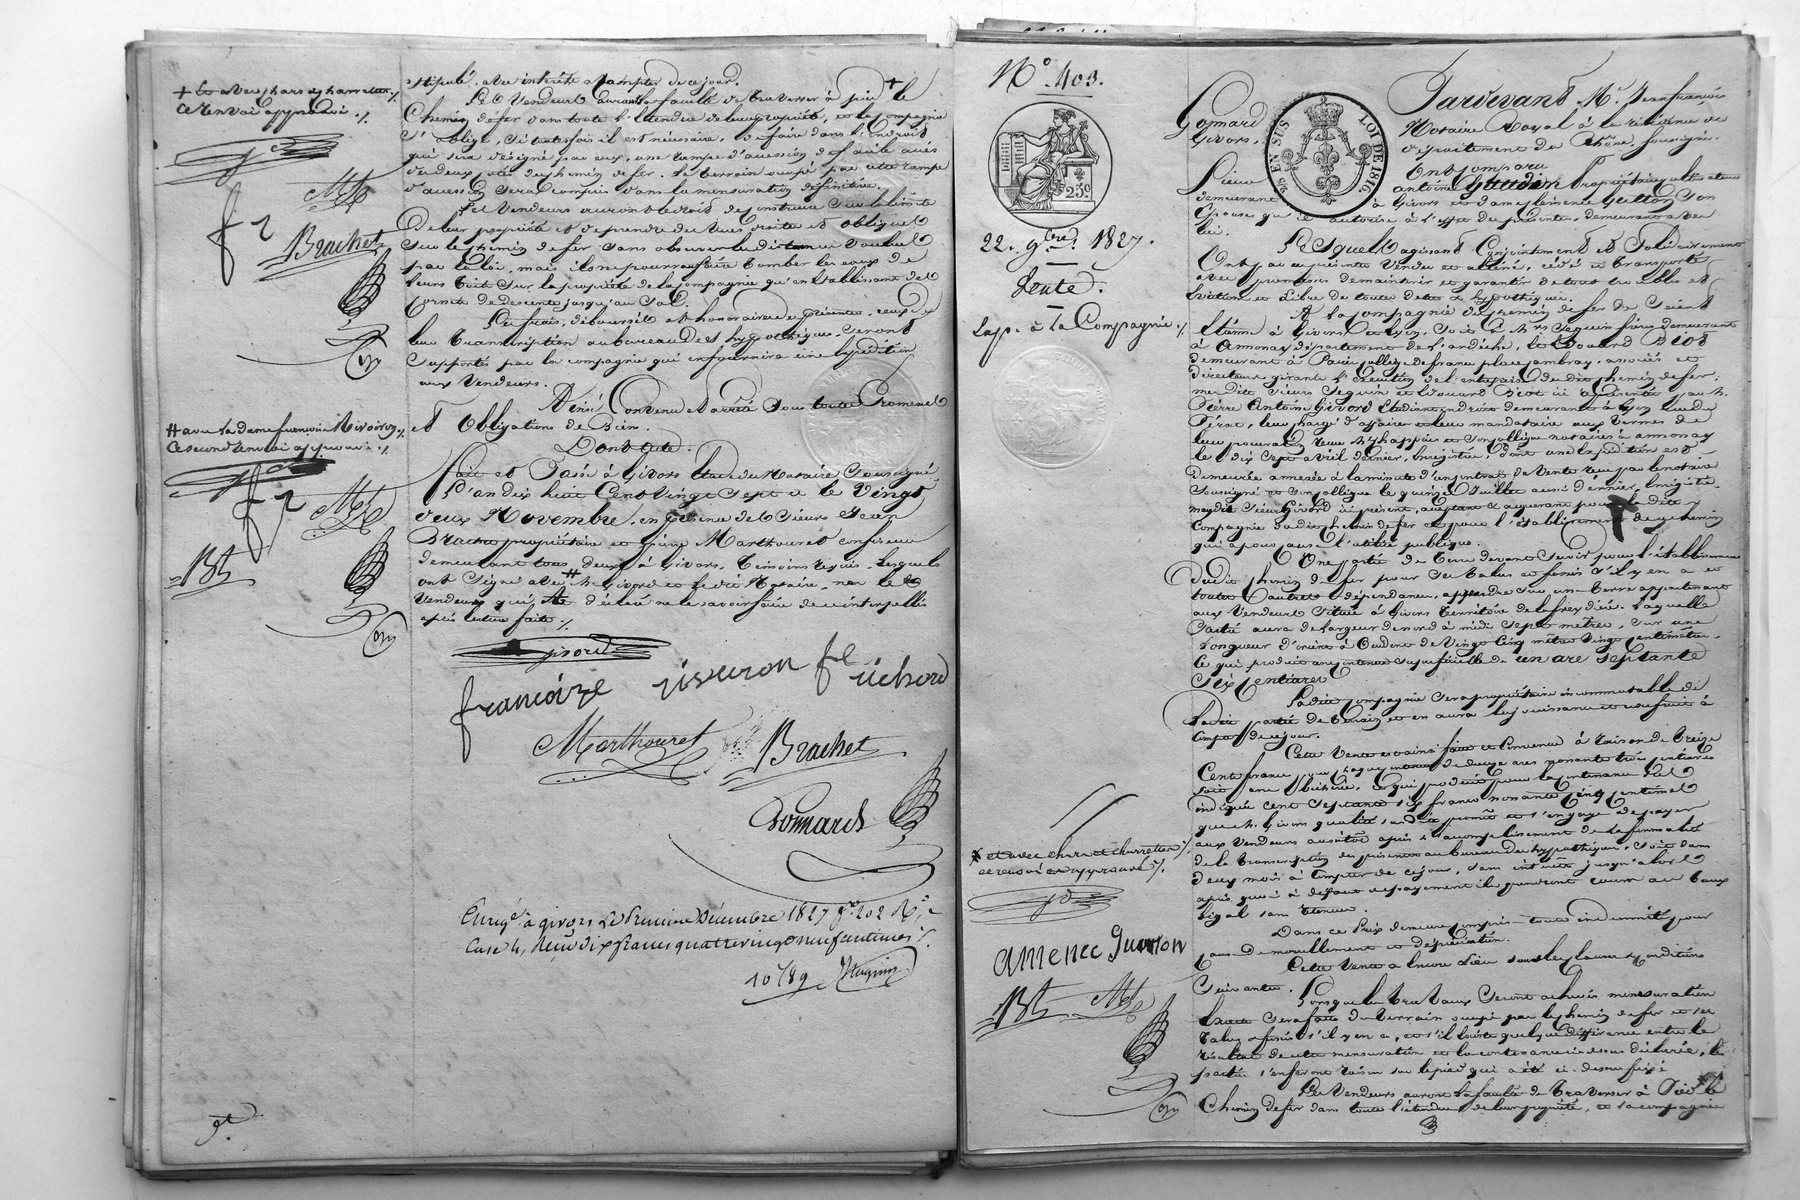 stipulé, avec intérêts à compter de ce jour.
Les Vendeurs auront la faculté de traverser à pied + le
Chemin de fer dans toute l'étendue de leur propriété, et la Compagnie
s'oblige, si toutefois il est nécessaire, de faire dans l'endroit
qui sera désigné par eux, une rampe d'accession de faite avec
des deux côtés du chemin de fer. Le terrain occupé par cette rampe
d'accession sera compris dans la mensuration définitive.
Les Vendeurs auront le droit de construire sur la limite
de leur propriété et d'y prendre des vues droites et obliques
sur le chemin de fer sans observer la distance voulue
par la loi, mais ils ne pourront faire tomber les eaux de
leurs toits sur la propriété de la compagnie qu'en établissant des
cornets de descente jusqu'au sol.
Les frais, déboursés et honoraires des présentes, ceux de
leur transcription au bureau des hypothèques, seront
supportés par la compagnie qui en fournira une expédition
aux Vendeurs.
Ainsi Convenu et arrêté sous toutes Promesses
et Obligations de Bien.
Dont acte.
Fait et Passé à Givors Etude du Notaire Soussigné
L'an dix huit Cent Vingt Sept et le Vingt
deux Novembre, en présence des Sieurs Jean
Brachet propriétaire et Marthouret confiseur
demeurant tous deux à Givors, témoins requis, lesquels
ont signé avec # M. Givord et le dit Notaire, non le
Vendeur qui a déclaré ne le savoir faire de ce interpellé
après lecture faite ./.
+ et avec chars et charrettes ./.
Ce renvoi approuvé ./.
f r
Mt
Brachet
# avec la dame françoise Rivoiron ./.
Ce second renvoi approuvé ./.
f r
Mt
Bt
givord
françoize rivuron fe richord
Marthouret Brachet
Gomard
Enrgé à Givors Le Premier Décembre 1827 fo 202 Ro
Case 4, Reçu dix francs quatre vingt neuf centimes ./.
10 f 89
No. 403.
25c
22. 9bre 1827.
Vente.
Exp. à la Compagnie ./.
EN SUS
LOI DE 1816
Pardevant Me. Jean françois
Gomard Notaire Royal à la résidence de
Givors, département du Rhône, soussigné.
Ont Comparu
Sieur antoine Propriétaire cultivateur
demeurant à Givors et dame Clémence Guitton son
Epouse qu'il autorise à l'effet des présentes, demeurant avec
lui.
Lesquels agissant Conjointement et Solidairement
Ont par ces présentes vendu et aliéné, cédé et transporté
avec promesse de maintenir et garantir de tous troubles et
Evictions et libre de toutes dettes & hypothèques.
A la compagnie du chemin de fer de Saint
Etienne à Givors et Lyon, Soit à Mrs Seguin frères demeurant
à Annonay département de l'ardèche, et Edouard Biot
demeurant à Paris collège de france place cambray, associés et
directeurs gérants l'Exécution de l'entreprise du dit chemin de fer;
mes dits sieurs Seguin et Edouard Biot ici représentés par M.
Pierre Antoine Givord Etudiant en droit demeurant à Lyon rue du
Pérat, leur chargé d'affaires et leur mandataire aux termes de
leur procuration reçue Me Chappuis et son collègue notaires à annonay
le dix sept avril dernier, Enregistrée, dont une Expédition est
demeurée annexée à la minute d'un contrat de Vente reçu par le notaire
soussigné et son collègue le quinze Juillet aussi dernier, enregistré.
mon dit sieur Givord ici présent, acceptant et acquérant pour la dite
Compagnie du dit chemin de fer et pour l'établissement de ce chemin
qui a pour cause l'utilité publique.
Une partie de terre devant servir pour l'établissement
du dit chemin de fer pour ses talus et fossés s'il y en a et
toutes autres dépendances, à prendre sur une terre appartenant
aux Vendeurs située à Givors territoire de la freydière. Laquelle
partie aura de largeur du nord à midi sept mètres, sur une
longueur d'orient à Occident de Vingt Cinq mètres Vingt centimètres
Ce qui produit une contenance superficielle de un are septante
Six Centiares
La dite Compagnie sera propriétaire incommutable de
la dite partie de terrain et en aura la jouissance et usufruit à
Compter de ce jour.
Cette Vente est ainsi faite et Convenue à raison de treize
Cents francs par chaque contenue de douze ares nonante trois centiares
soit une Bicherée, ce qui produit pour la contenance ci dessus
indiquée cent septante six francs nonante cinq centimes
que M. Givord en sa qualité susdite promet et s'engage de payer
aux Vendeurs aussitôt après l'accomplissement de la formalité
de la transcription des présentes au bureau des hypothèques, soit dans
deux mois à Compter de ce jour, sans intérêts jusqu'alors
après quoi à défaut de payement ils prendront cours au taux
légal sans retenue.
Dans ce Prix demeure comprise toute indemnité pour
cause de morcellement et dépréciation.
Cette Vente a Encore Lieu sous les clauses & conditions
Suivantes.
Lorsque les travaux seront achevés mensuration
Exacte sera faite du terrain occupé par le chemin de fer et ses
talus & fossés s'il y en a, et s'il existe quelque différence entre le
résultat de cette mensuration et la contenance ci dessus déclarée, les
parties s'en feront raison sur le pied qui a été ci dessus fixé.
Les Vendeurs auront la faculté de traverser à Pied le
Chemin de fer dans toute l'étendue de leur propriété, et la compagnie
x et avec chars et charrettes ./.
ce renvoi approuvé ./.
amence Guitton
Bt Mt